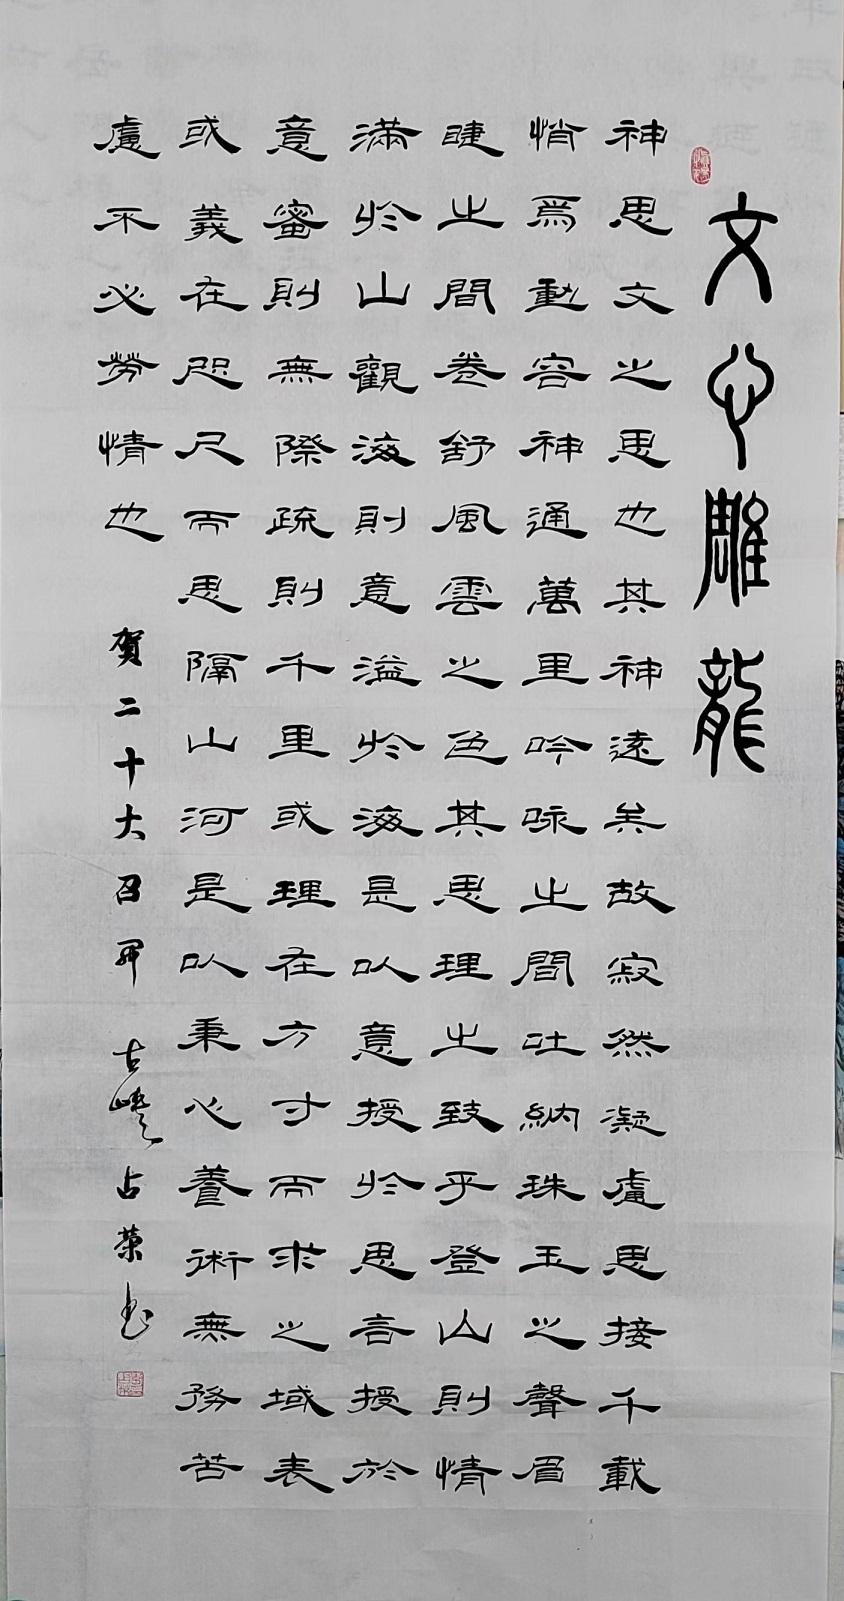 文心雕龍
神思文之思也其神遠矣故寂然凝慮思接千載
悄焉動容神通萬里吟咏之間吐納珠玉之聲眉
睫之間卷舒風雲之色其思理之致乎登山則情
滿於山觀海則意溢於海是以意授於思言授於
意蜜則無際疏則千里或理在方寸而求之域表
或義在咫尺而思隔山河是以秉心養術無務苦
慮不必勞情也
贺二十大召开 古 占荣书